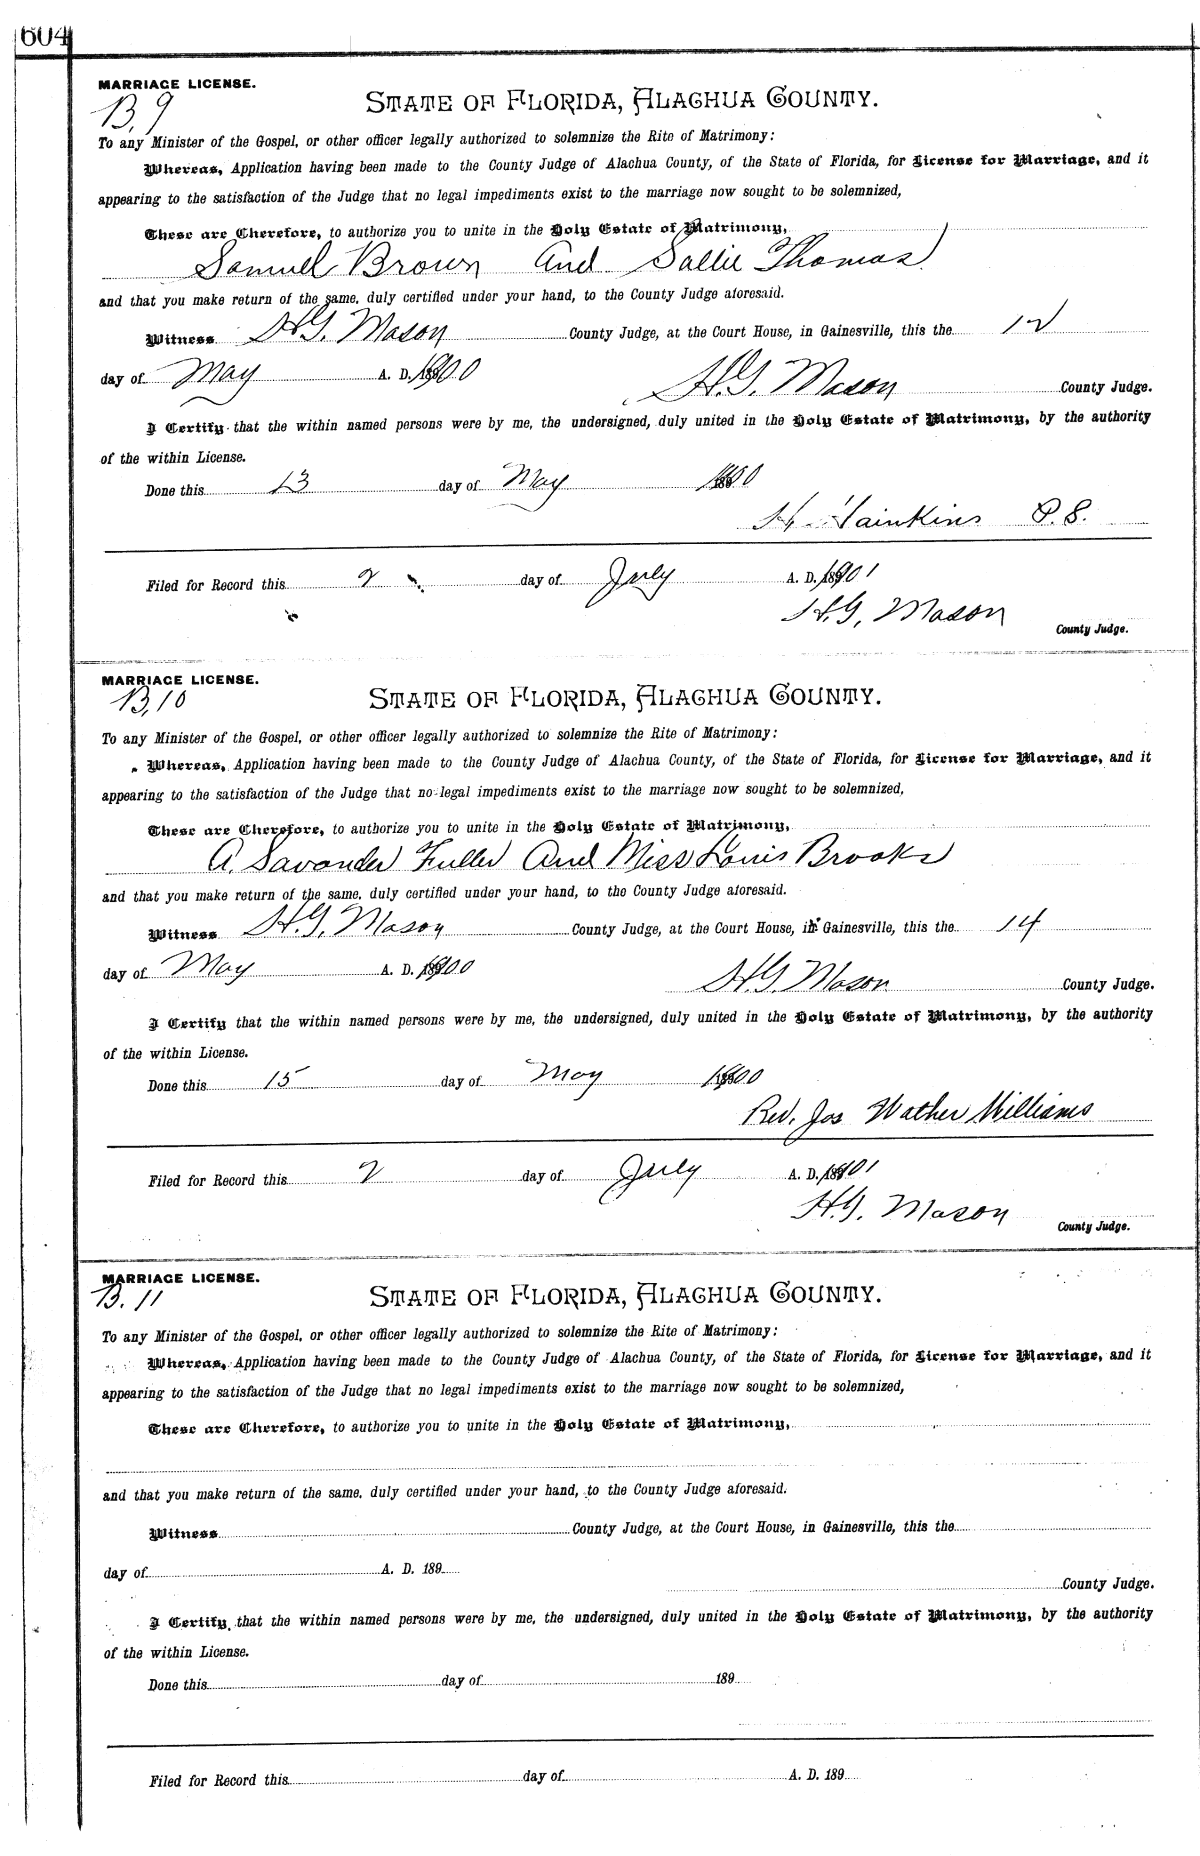 604
MARRIAGE LICENSE.
B, 9
STATE OF FLORIDA, ALACHUA COUNTY.
To any Minister of the Gospel, or other officer legally authorized to solemnize the Rite of Matrimony:
Whereas, Application having been made to the County Judge of Alachua County, of the State of Florida, for License for Marriage, and it
appearing to the satisfaction of the Judge that no legal impediments exist to the marriage now sought to be solemnized,
These are Therefore, to authorize you to unite in the Holy Estate of Matrimony,
Samuel Brown And Sallie Thomas
and that you make return of the same, duly certified under your hand, to the County Judge aforesaid.
Witness H.G. Mason County Judge, at the Court House, in Gainesville, this the 12
day of May A. D. 1900 H.G. Mason County Judge.
I Certify that the within named persons were by me, the undersigned, duly united in the Holy Estate of Matrimony, by the authority
of the within License.
Done this 13 day of May 1900
H. P. E.
Filed for Record this 2 day of July A. D. 1901
H.G, Mason
County Judge.
MARRIAGE LICENSE.
B, 10
STATE OF FLORIDA, ALACHUA COUNTY.
To any Minister of the Gospel, or other officer legally authorized to solemnize the Rite of Matrimony:
Whereas, Application having been made to the County Judge of Alachua County, of the State of Florida, for License for Marriage, and it
appearing to the satisfaction of the Judge that no legal impediments exist to the marriage now sought to be solemnized,
These are Therefore, to authorize you to unite in the Holy Estate of Matrimony,
A. Savander Fuller And Miss Brooks
and that you make return of the same, duly certified under your hand, to the County Judge aforesaid.
Witness H.G, Mason County Judge, at the Court House, in Gainesville, this the 14
day of May A. D. 1900 H.G. Mason County Judge.
I Certify that the within named persons were by me, the undersigned, duly united in the Holy Estate of Matrimony, by the authority
of the within License.
Done this 15 day of May 1900
Rev. Jos Williams
Filed for Record this 2 day of July A. D. 1901
H.G. Mason
County Judge.
MARRIAGE LICENSE.
B. 11
STATE OF FLORIDA, ALACHUA COUNTY.
To any Minister of the Gospel, or other officer legally authorized to solemnize the Rite of Matrimony:
Whereas, Application having been made to the County Judge of Alachua County, of the State of Florida, for License for Marriage, and it
appearing to the satisfaction of the Judge that no legal impediments exist to the marriage now sought to be solemnized,
These are Therefore, to authorize you to unite in the Holy Estate of Matrimony,
and that you make return of the same, duly certified under your hand, to the County Judge aforesaid.
Witness County Judge, at the Court House, in Gainesville, this the
day of A. D. 189
County Judge.
I Certify that the within named persons were by me, the undersigned, duly united in the Holy Estate of Matrimony, by the authority
of the within License.
Done this day of 189
Filed for Record this day of A. D. 189